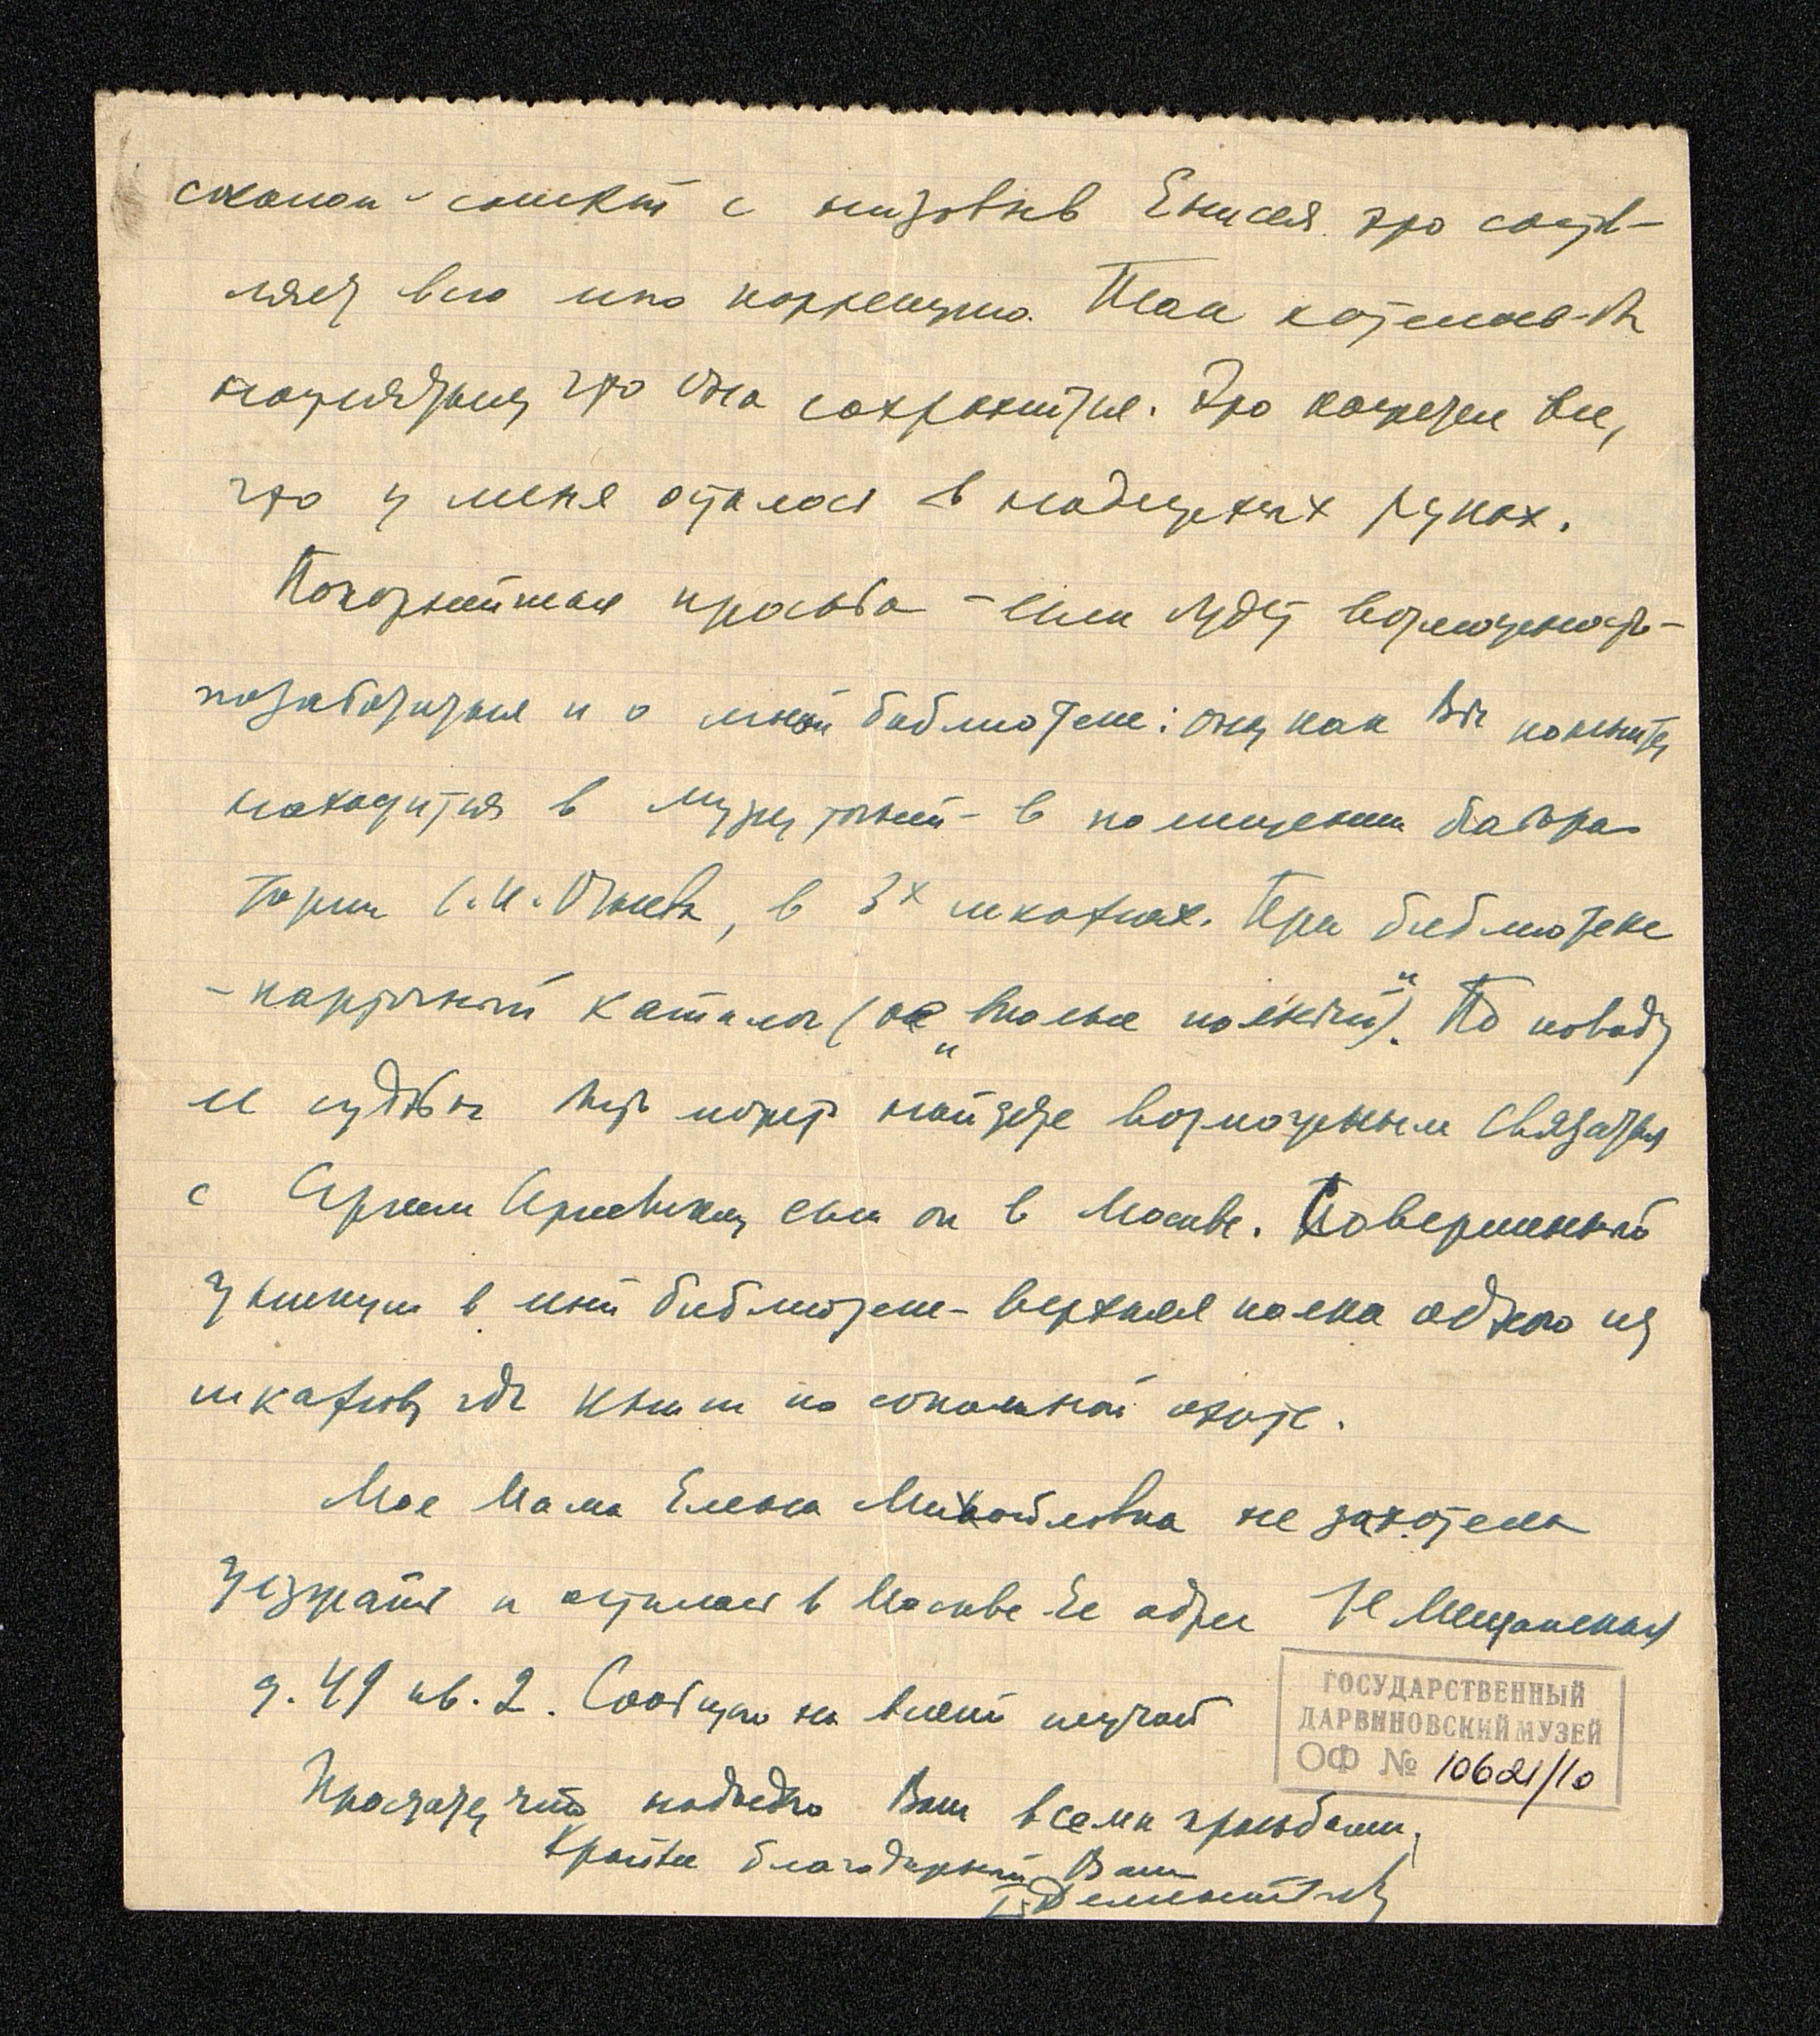 сокола с низовьев Енисея. Это состав-
ляет всю мою коллекцию. Так хотелось бы
надеяться, что она сохранится. Это конечно все,
что у меня осталось в надежных руках.
Покорнейшая просьба – если будет возможность –
позаботиться и о моей библиотеке: она, как Вы помните,
находится в музее, в помещении лабора-
тории С.И. Огнева, в 3х шкафах. При библиотеке
– карточный каталог (не „вполне полный“). По поводу
ее судьбы может найдете возможным связаться
с Сергеем Ивановичем, если он в Москве. Совершенный
уникум в моей библиотеке – верхняя полка одного из
шкафов, где книги по соколиной охоте.
Моя Мама Елена Михайловна не захотела
уезжать и осталась в Москве. Ее адрес Мещанская
д. 49 кв. 2. Сообщаю на всякий случай
Простите, что надоедаю Вам всеми просьбами.
Крайне благодарный Ваш
Г. Дементьев
ГОСУДАРСТВЕННЫЙ
ДАРВИНОВСКИЙ МУЗЕЙ
ОФ № 10621/10